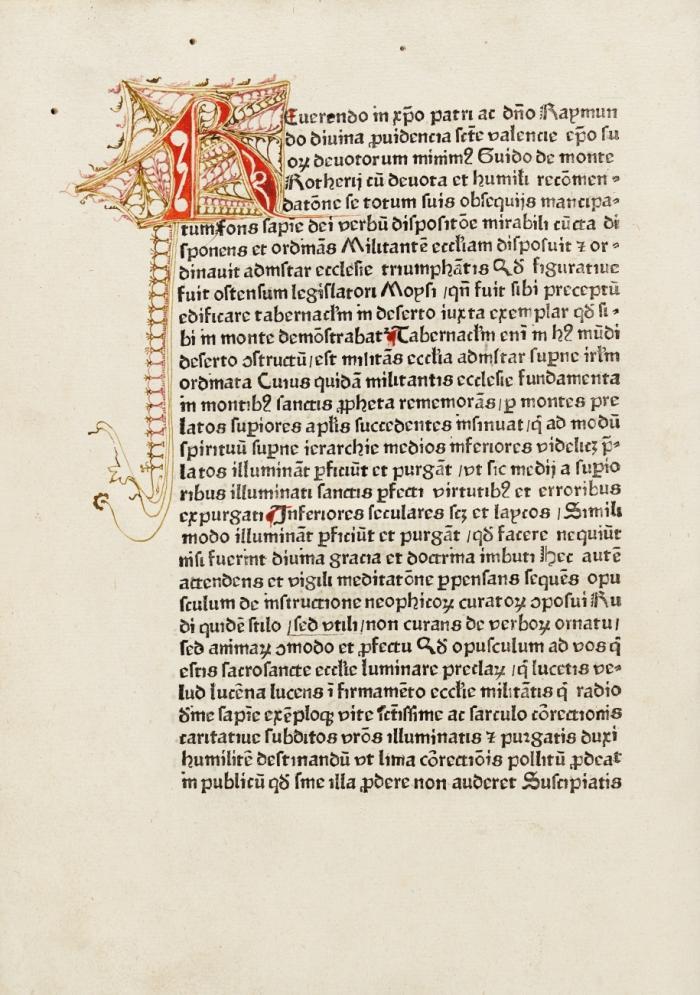 Reuerendo in xp̄o patri ac dn̄o Raymun
do diuina ꝓuidencia sc̄te valencie ep̄o su
oꝝ deuotorum minimꝰ Guido de monte
Rotherij cū deuota et humili recōmen⸗
datōne se totum suis obsequijs mancipa⸗
tum fons sapīe dei verbū dispositōe mirabili cūcta di
sponens et ordinās Militantē eccl̄iam disposuit ⁊ or⸗
dinauit adinstar ecclesie triumphātis Qd̄ figuratiue
fuit ostensum legislatori Moysi /qn̄ fuit sibi preceptū
edificare tabernacl̄m in deserto iuxta exemplar qd̄ si⸗
bi in monte demōstrabat᷑ Tabernacl̄m eni ī in hꝰ mūdi
deserto ↄstructū/est militās eccl̄ia adinstar sup̄ne irl̄m
ordinata Cuius quidā militantis ecclesie fundamenta
in montibꝰ sanctis ꝓpheta rememorās/ꝑ montes pre
latos sup̄iores apl̄is succedentes insinuat/q̄ ad modū
spirituū sup̄ne ierarchie medios inferiores videlicꝫ p̄⸗
latos illumināt ꝑficiūt et purgāt /vt sic medij a sup̄io
ribus illuminati sanctis ꝑfecti virtutibꝰ et erroribus
expurgati Inferiores seculares scꝫ et laycos /Simili
modo illumināt ꝑficiūt et purgāt /qd̄ facere nequiūt
nisi fuerint diuina gracia et doctrina imbuti Hec autē
attendens et vigili meditatōne ꝑpensans sequēs opu
sculum de instructione neophicoꝝ curatoꝝ ↄposui Ru
di quidē stilo /sed vtili/non curans de verboꝝ ornatu/
sed animaꝝ ↄmodo et ꝓfectu Qd̄ opusculum ad vos q̄
estis sacrosancte eccl̄ie luminare preclaꝝ /q̄ lucetis ve⸗
lud lucēna lucens ī firmamēto eccl̄ie militātis q̄ radio
d̄ine sapīe exēploqꝫ vite sc̄tissime ac sarculo cōrectionis
caritatiue subditos vrōs illuminatis ⁊ purgatis duxi
humilitē destinandū vt lima cōrectiōis pollitū ꝓdeat
in publicū qd̄ sine illa ꝓdere non auderet Suscipiatis